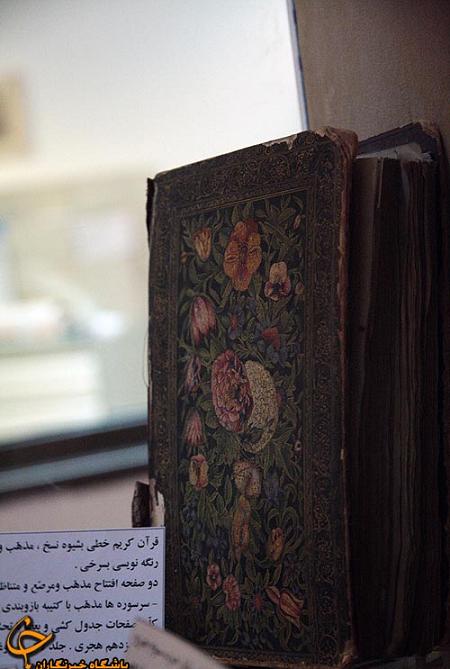 قرآن کریم خطی بشیوه نسخ ، مذهب و
رنگه نویسی بسرخی .
دو صفحه افتتاح مذهب ومرصّع و متناظر
- سرسوره ها مذهب با کتیبه بازوبندی
صفحات جدول کشی و
زدهم هجری . جلد
باشگاه خبرنگاران